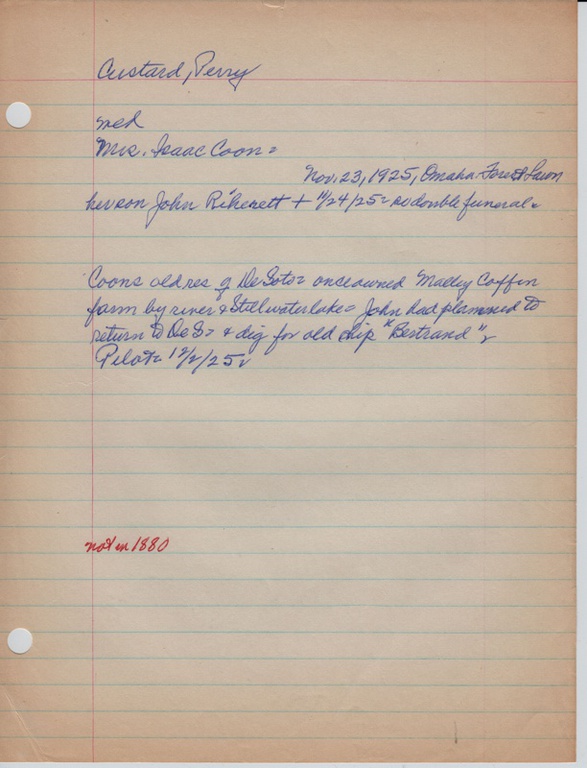 Custard, Perry
med
Mrs. Isaac Coon =
Nov. 23, 1925, Omaha Forest Lawn
her son John + 11/24/25 = so double funeral.
Coons old res of DeSoto = once owned Coffin
farm by river & Stillwater lake = John had planned to
return to DeS = & dig for old ship "Bertrand"
Pilot = 12/2/25
not in 1880